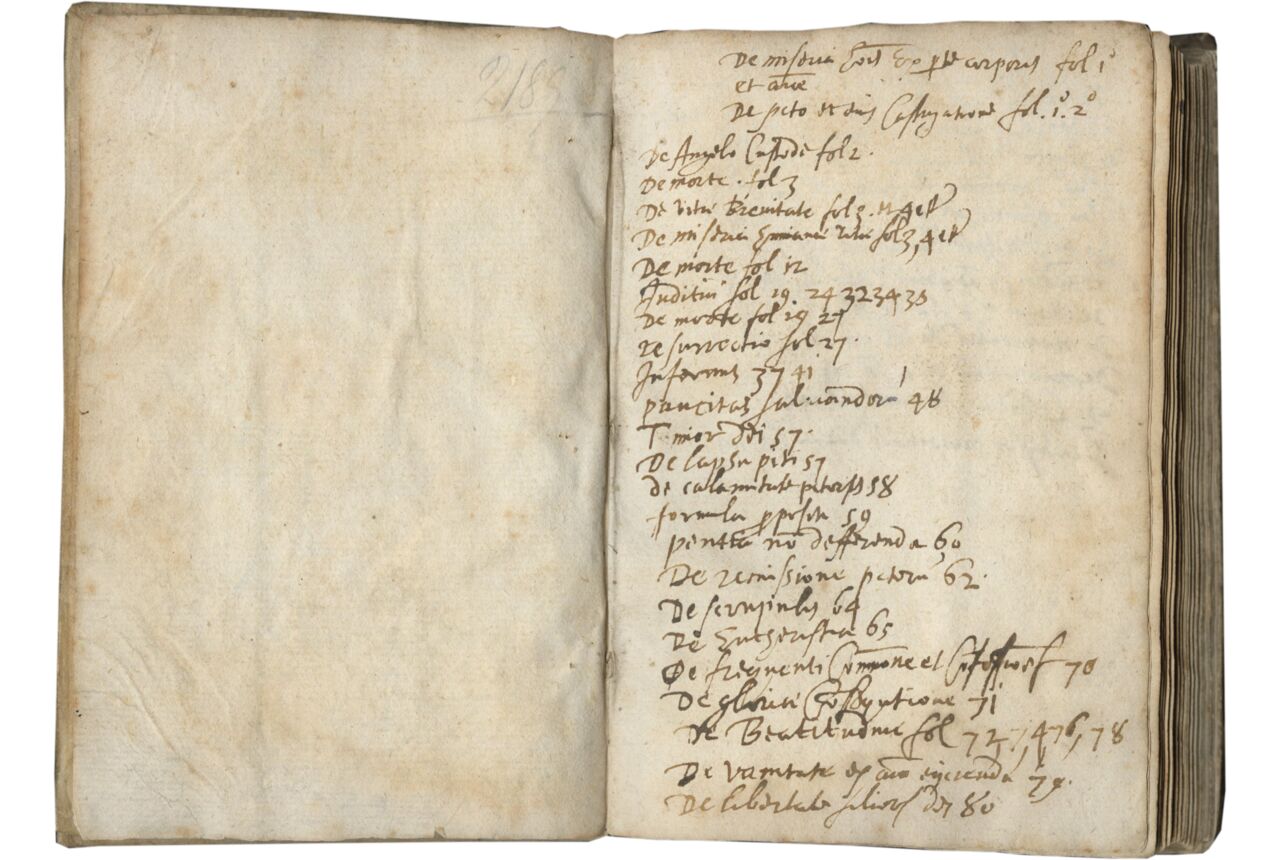 2185
De miseria hois Ex pte corporis fol 1°
et aie
De pcto et eius Castigatione fol. 1°. 2°
De Angelo Custode fol 2.
De morte. fol 3
De vitae brevitate fol 3. et 4 et
De miseria humanae vitae fol 3, 4 et
De morte fol 12
Juditiu fol 19. 24 32 34 38
De morte fol 19 27
resurrectio fol 27.
Infernus 37 41
paucitas salvandoru 48
Timor dei 57.
De lapsu pcti 57
de calamitate pctoris 58
formula ppositi 59
penitia no defferenda 60
De remissione pctoru 62.
De scrupulis 64
De Eucharistia 65
De frequenti Commone et 70
De gloriae Consecutione 71
de Beatitudine fol 72, 74 76, 78
De vanitate ex aio eijcienda 79.
De libertate filior dei 80